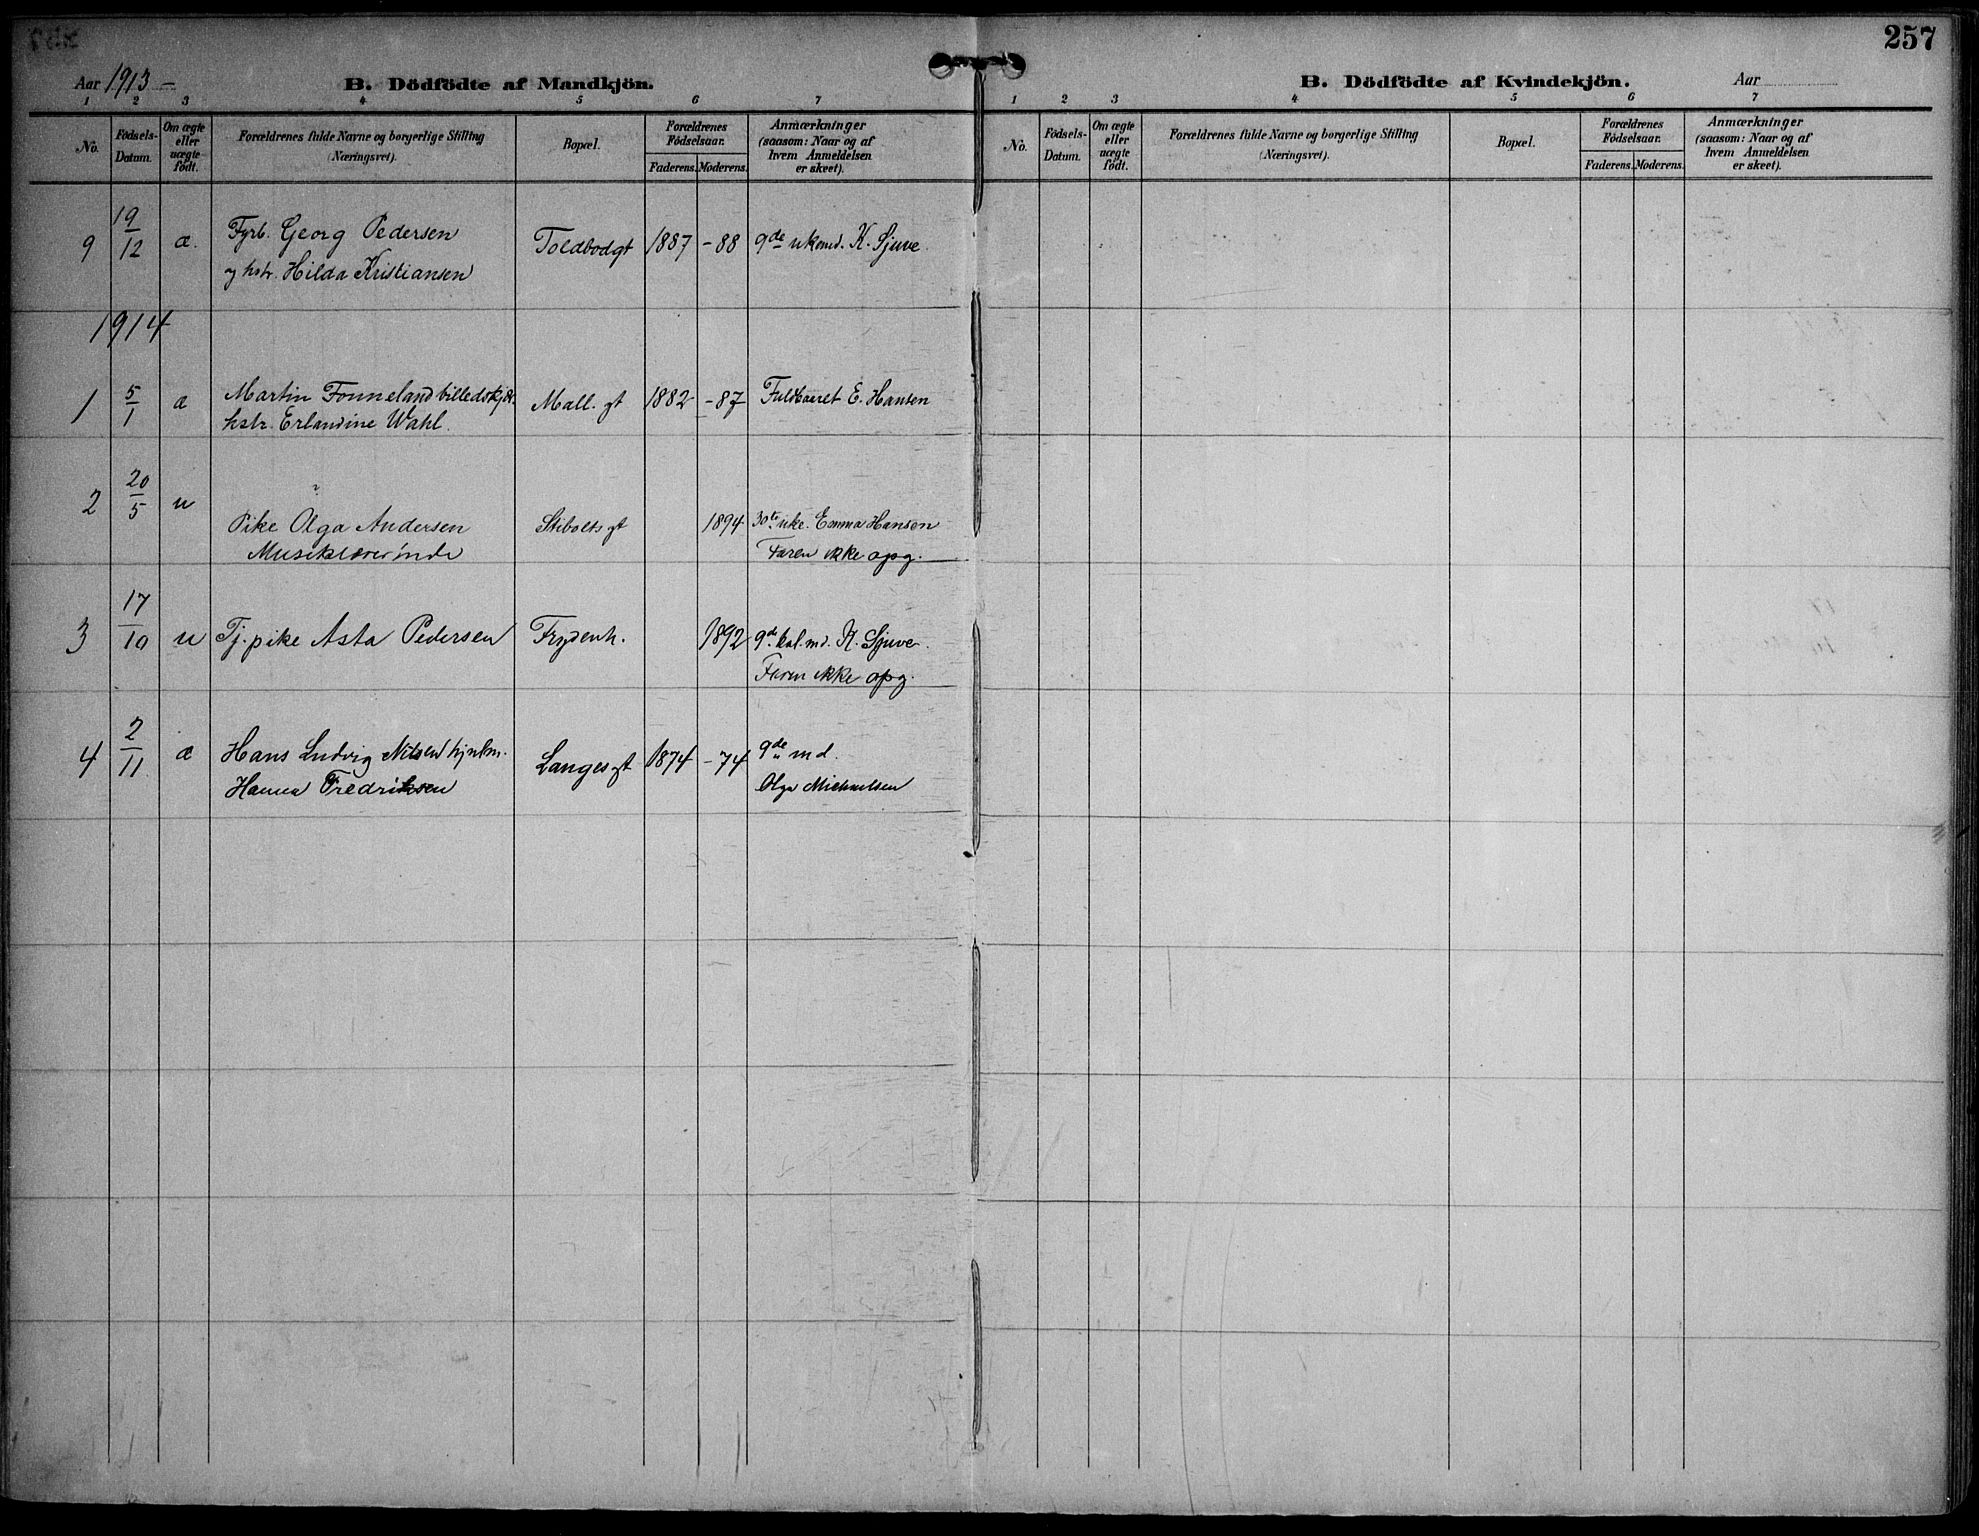 257
Aar 1913 –
B. Dödfödte af Mandkjön.
1 2 3 4 5 6 7
No.
Födsels-Datum.
Om ægte eller uægte födt.
Forældrenes fulde Navne og borgerlige Stilling
(Næringsvei).
Bopæl.
Forældrenes Födselsaar.
Faderens. Moderens.
Anmærkninger
(saasom: Naar og af
hvem Anmeldelsen
er skeet).
9 19/12 æ. Fyrb. Georg Pedersen Toldbodgt 1887 –88 9de ukemd. K. Sjuve
og hstr. Hilda Kristiansen
1914
1 5/1 æ Martin Fonneland Mall. gt 1882 –87 Fuldbaaret E. Hansen
hstr. Erlandine Wahl.
2 20/5 u ?
Pike Olga Andersen Stibolts gt 1894 30te uke. Emma Hansen
Musiklærerinde Faren ikke opg.
3 17/10 u Tj. pike Asta Pedersen Frydenh. 1892 9de kal. md. K. Sjuve.
Faren ikke opg.
4 2/11 æ Hans Ludvig Nilsen Langes gt 1874 –74 9de md.
Hanna Fredriksen Olga Michaelsen
B. Dödfödte af Kvindekjön.
Aar
1 2 3 4 5 6 7
No.
Födsels-Datum.
Om ægte eller uægte födt.
Forældrenes fulde Navne og borgerlige Stilling
(Næringsvei).
Bopæl.
Forældrenes Födselsaar.
Faderens. Moderens.
Anmærkninger
(saasom: Naar og af
hvem Anmeldelsen
er skeet).